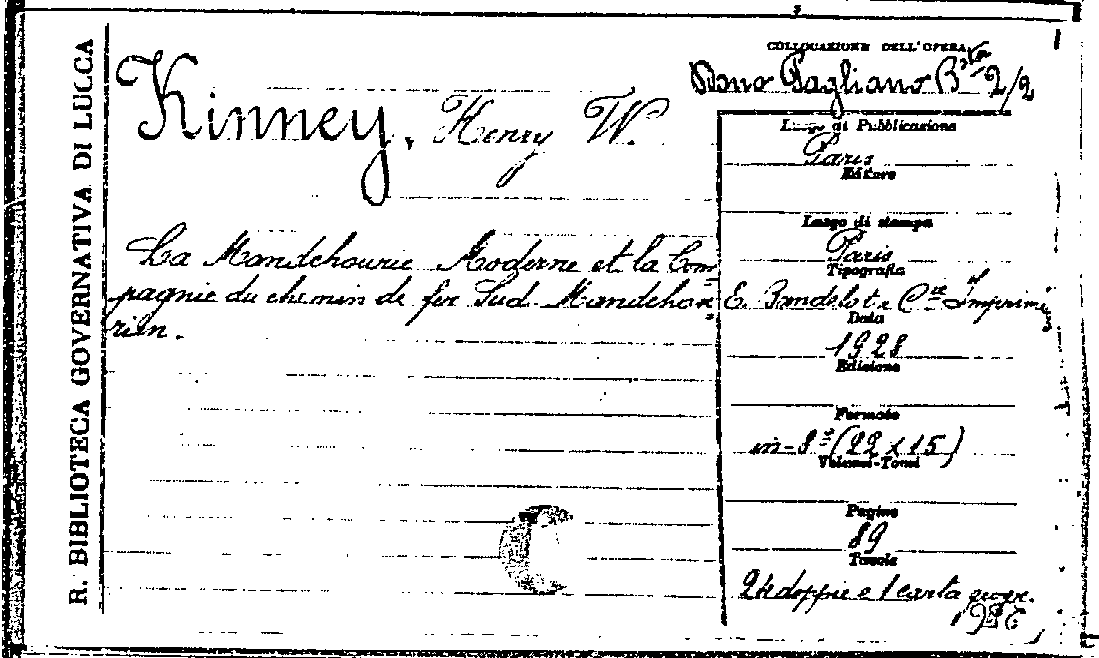 R. BIBLIOTECA GOVERNATIVA DI LUCCA
Kinney, Henry W.
La Mandchourie Moderne et la Com=
pagnie du chemin de fer Sud-Mandchou=
rien.
COLLOCAZIONE DELL'OPERA
Dono Pagliano Bsta 2/2
Luogo di Pubblicazione
Paris
Editore
Luogo di stampa
Paris
Tipografia
E. Baudelot e Cie Imprim
Data
1928
Edizione
Formato
in-8° (22 x 15)
Volumi-Tomi
Pagine
89
Tavole
24 doppie e 1 carta geogr.